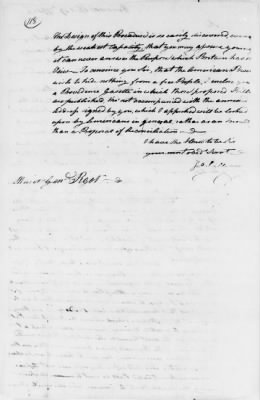 118
The Design of this Procedure is so easily discovered, even
by the weakest Capacity, that you may assure yourself
it can never answer the Purpose which Britain has in
View. To convince you Sir, that the Americans do not
wish to hide nothing from a free People, I inclose you
a Providence Gazette in which those proposed
are published tho' not accompanied with the
signed by you, which I apprehend will be looked
upon by Americans in general, rather as an Insult
than a Proposal of Reconciliation
I have the Honor to be &c
your most obed Servt
Major Genl